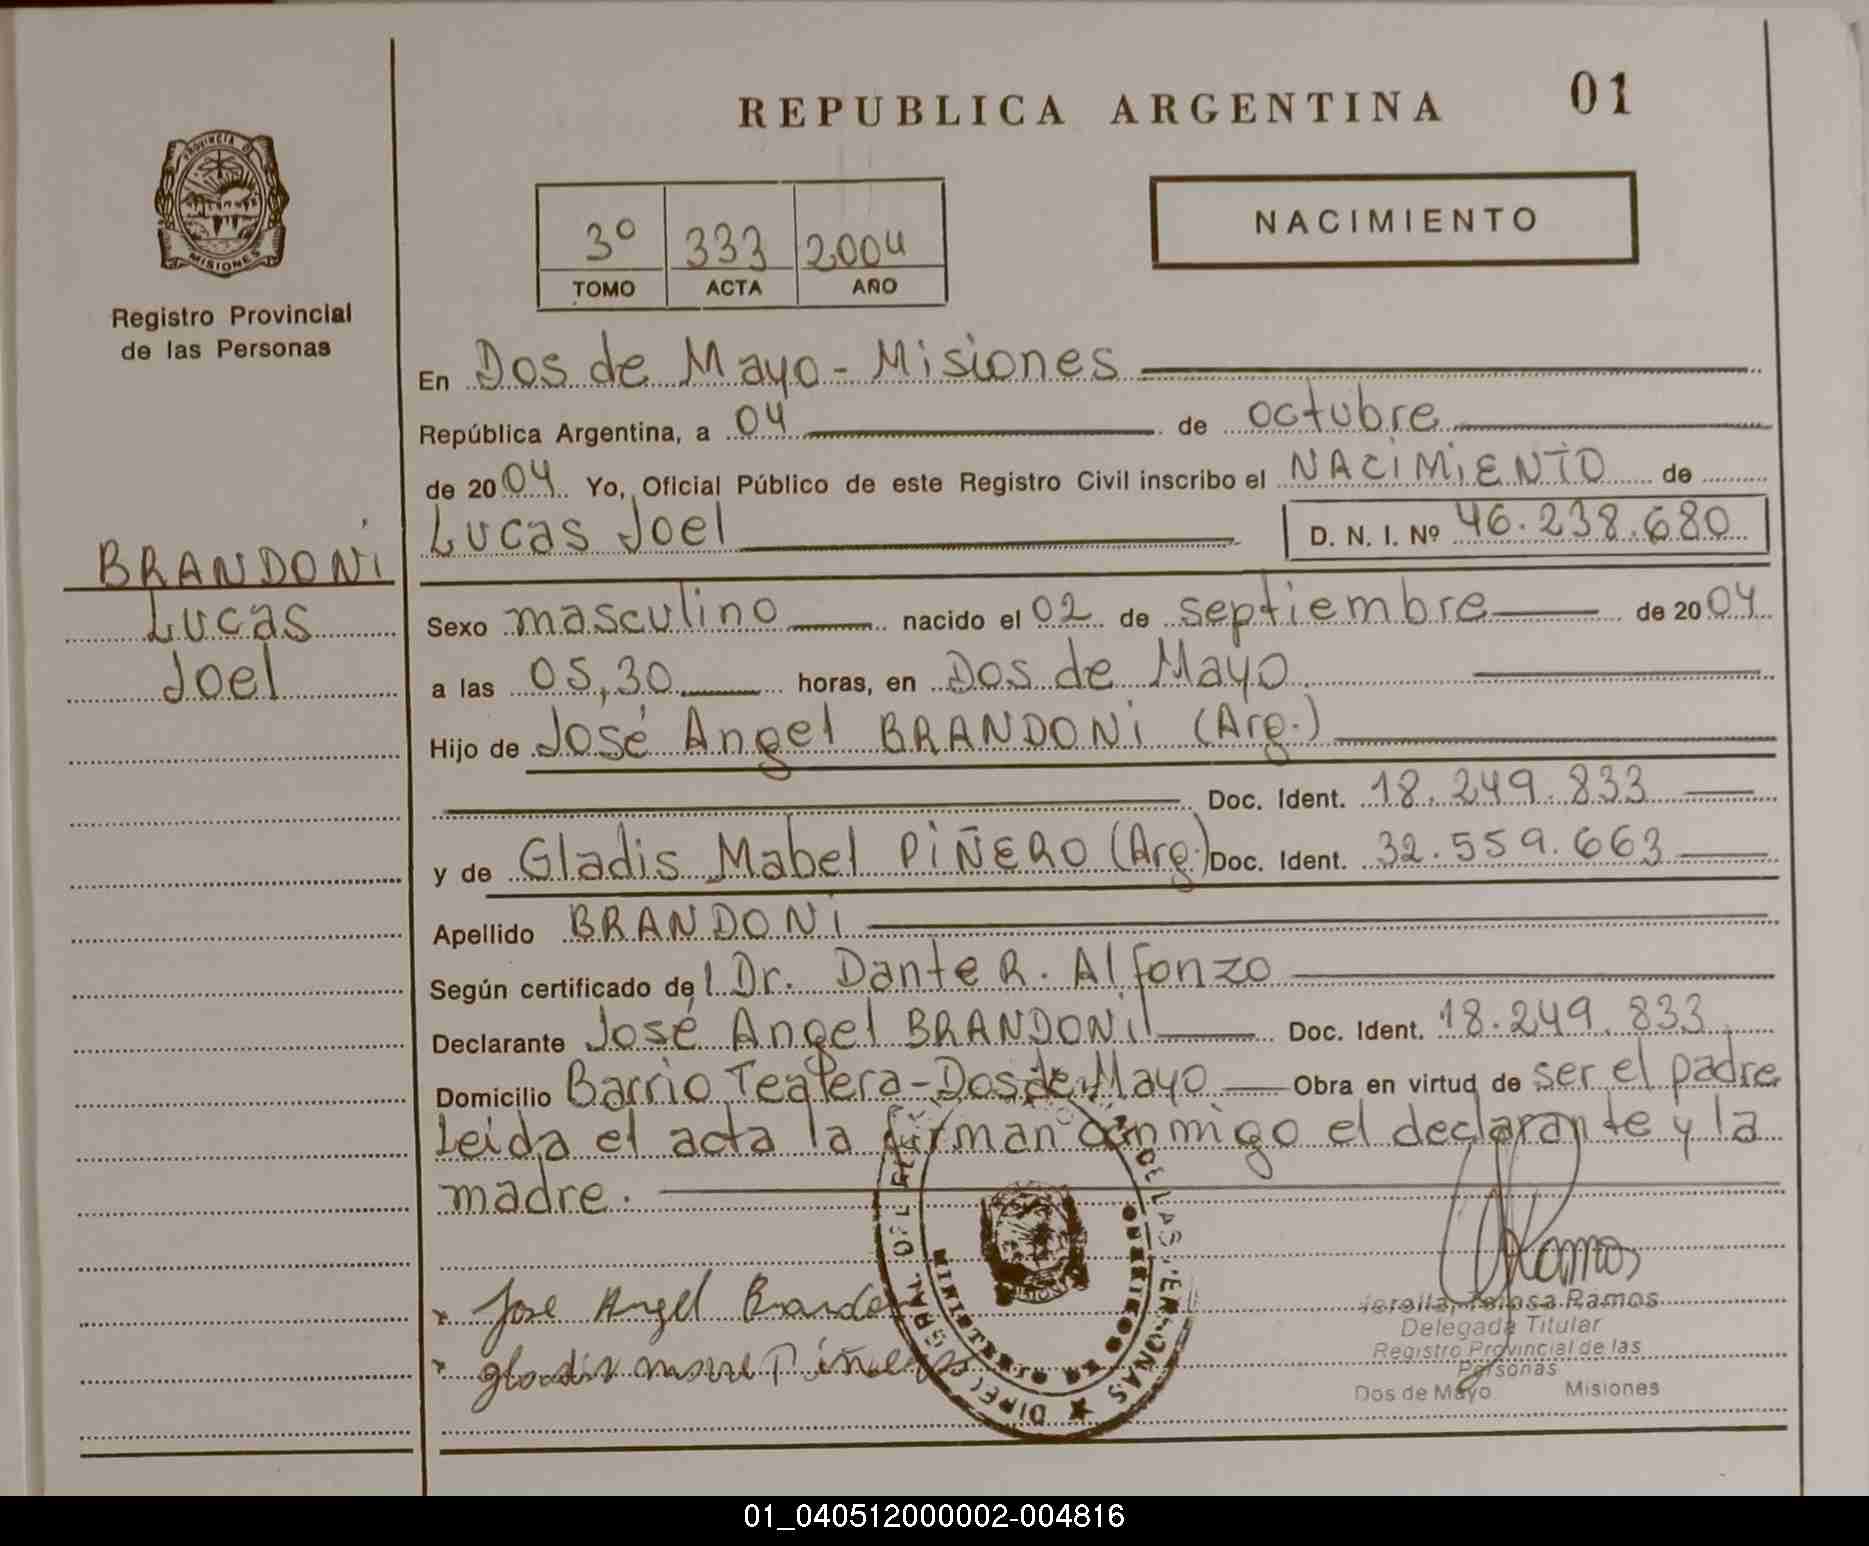 REPUBLICA ARGENTINA
01
PROVINCIA DE
MISIONES
Registro Provincial
de las Personas
3º 333 2004
TOMO ACTA AÑO
NACIMIENTO
En Dos de Mayo - Misiones
República Argentina, a 04 de octubre
de 2004 Yo, Oficial Público de este Registro Civil inscribo el NACIMIENTO de
Lucas Joel D. N. I. Nº 46.238.680
BRANDONI
Lucas
Joel
Sexo masculino nacido el 02 de septiembre de 2004
a las 05,30 horas, en Dos de Mayo
Hijo de José Angel BRANDONI (Arg.)
Doc. Ident. 18.249.833
y de Gladis Mabel PIÑERO (Arg.) Doc. Ident. 32.559.663
Apellido BRANDONI
Según certificado del Dr. Dante R. Alfonzo
Declarante José Angel BRANDONI Doc. Ident. 18.249.833
Domicilio Barrio Tealera - Dos de Mayo Obra en virtud de ser el padre
Leida el acta la firman conmigo el declarante y la
madre.
DE LAS PERSONAS
MINISTERIO
Ramos
Jose Angel
Ramos
Delegada Titular
Registro Provincial de las
Personas
Dos de Mayo Misiones
01_040512000002-004816